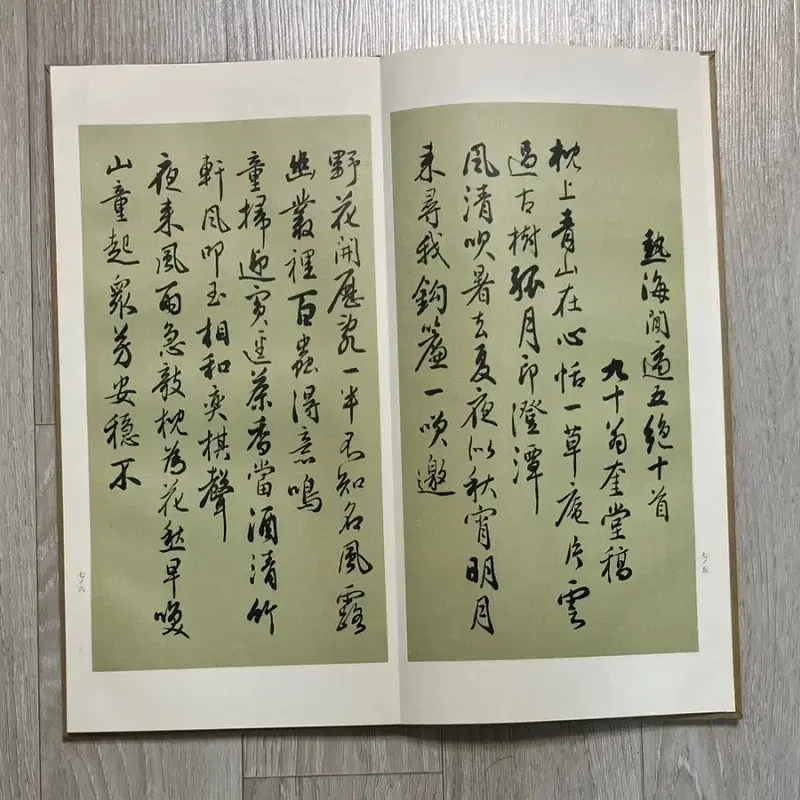 熱海閒適五絕十首
九十翁奎堂稿
枕上青山在心恬一草庵片雲
過古樹孤月印澄潭
風清暑去夏夜似秋宵明月
來尋我鈎簾一咲邀
七ノ五
野花開歷亂一半不知名風露
幽叢裡百蟲得意鳴
童掃迎賓逕茶香當酒清竹
軒風叩玉相和奕棋聲
夜來風雨急敧枕為花愁早喚
山童起眾芳安穩不
七ノ六